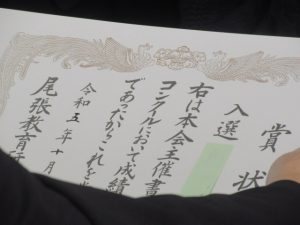 賞状
入選
右は本会主催書
コンクールにおいて成績
であったからこれを
令和五年十月
尾張教育